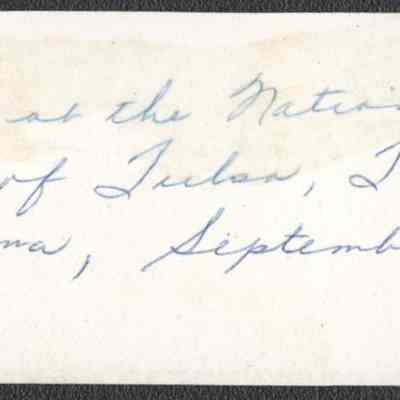 at the Natio
of Tulsa, T
ma, Septemb